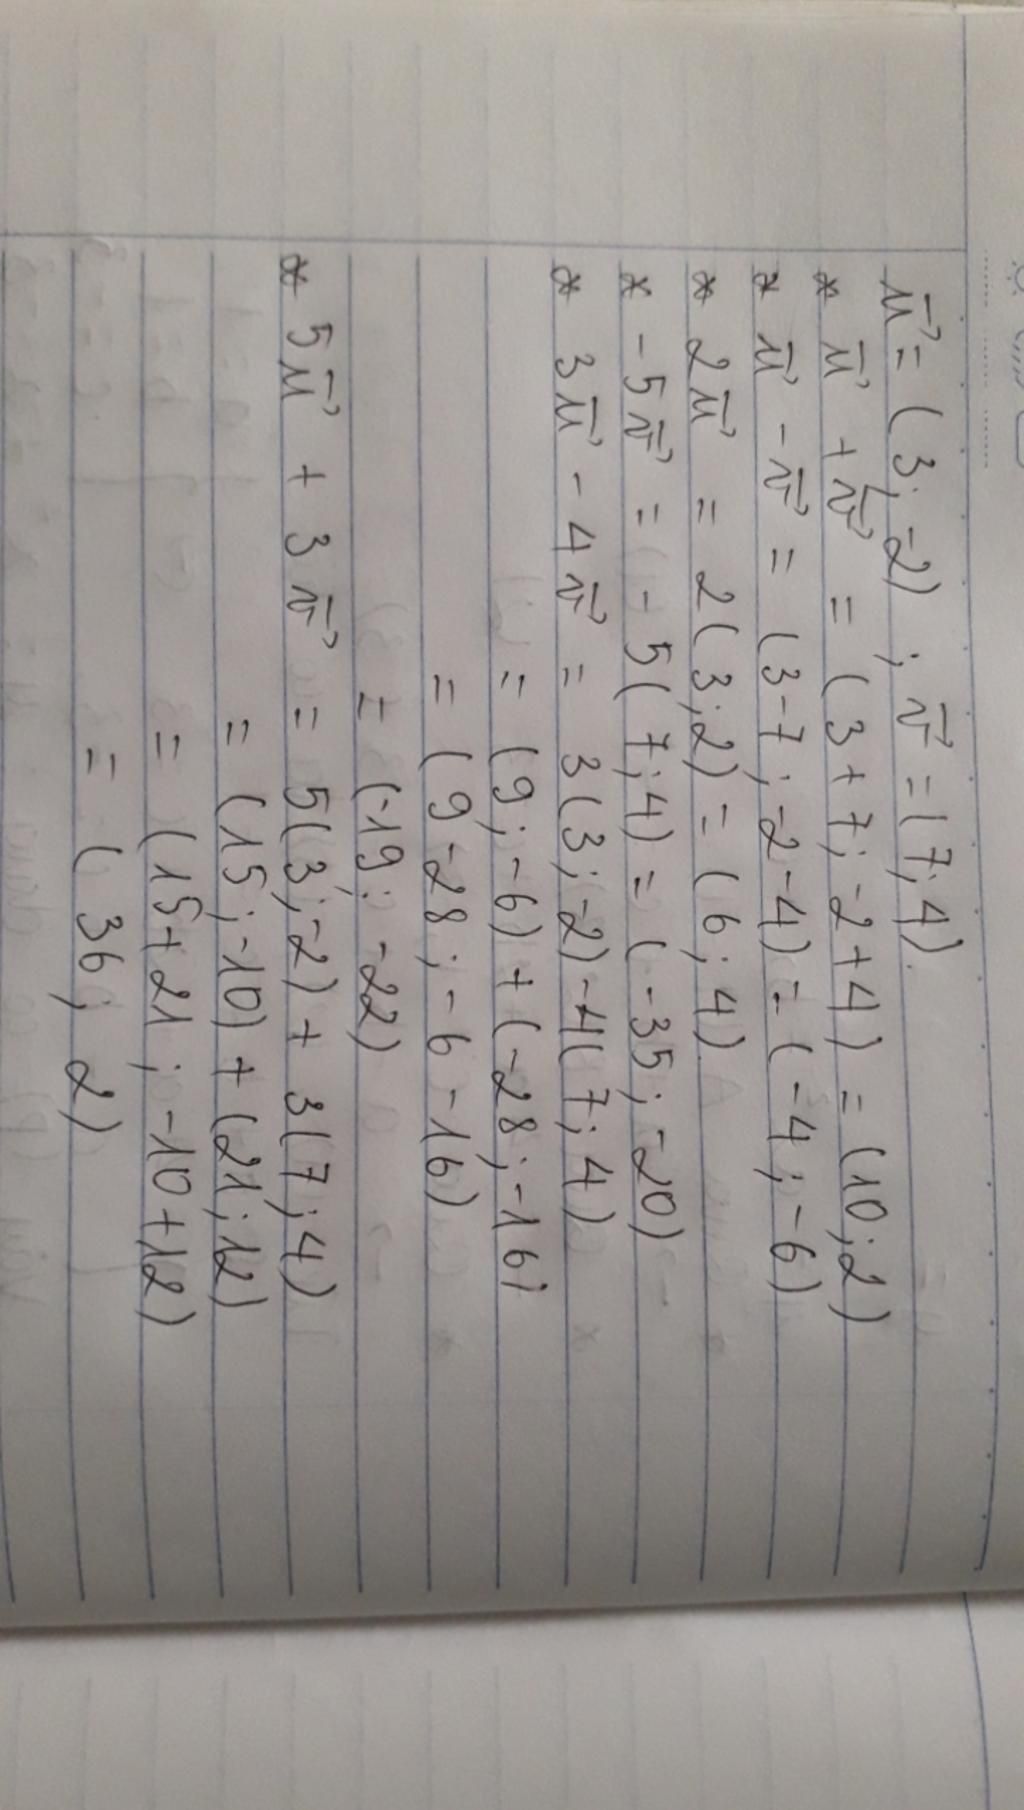 u⃗ = (3; -2) ; v⃗ = (7; 4).
* u⃗ + v⃗ = (3+7; -2+4) = (10; 2)
* u⃗ - v⃗ = (3-7; -2-4) = (-4; -6)
* 2u⃗ = 2(3; 2) = (6; 4)
* -5v⃗ = -5(7; 4) = (-35; -20)
* 3u⃗ - 4v⃗ = 3(3; -2) - 4(7; 4)
= (9; -6) + (-28; -16)
= (9-28; -6-16)
= (-19; -22)
* 5u⃗ + 3v⃗ = 5(3; -2) + 3(7; 4)
= (15; -10) + (21; 12)
= (15+21; -10+12)
= (36; 2)